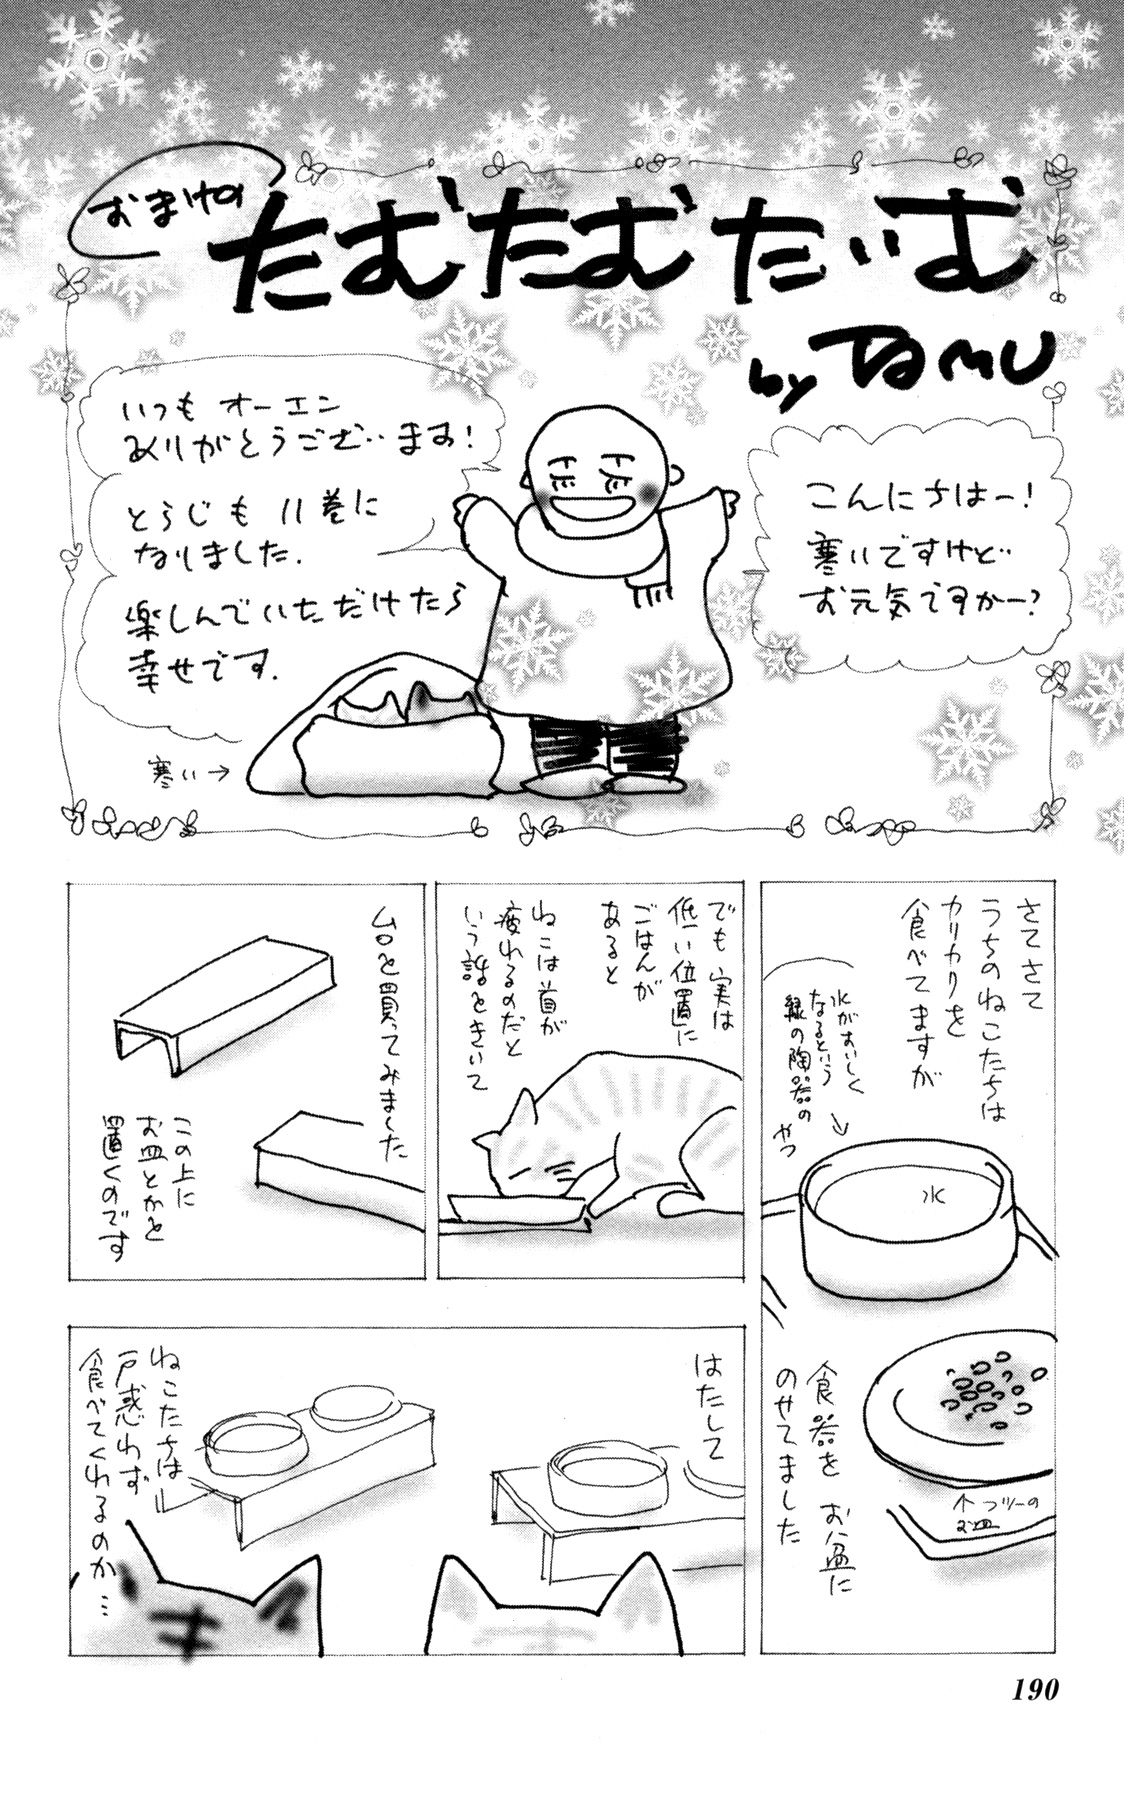 おまけの
たむたむたいむ
by TAMU
こんにちはー!
寒いですけど
お元気ですかー?
いつもオーエン
ありがとうございます!
とらじも11巻に
なりました.
楽しんでいただけたら
幸せです.
寒い→
さてさて
うちのねこたちは
カリカリを
食べてますが
水がおいしく
なるという
緑の陶器の
やつ
水
食器を お盆に
のせてました
フツーの
お皿
でも 実は
低い位置に
ごはんが
あると
ねこは首が
疲れるのだと
いう話をきいて
台を買ってみました
この上に
お皿とかを
置くのです
はたして
ねこたちは
戸惑わず
食べてくれるのか…
190